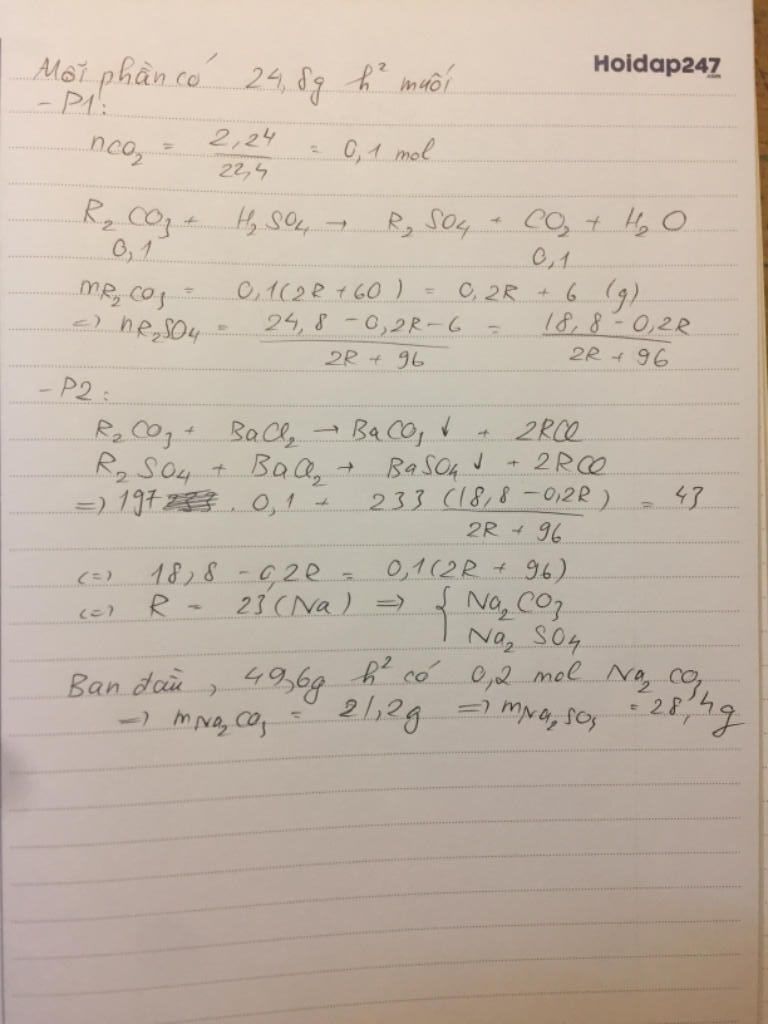 Hoidap247
.com
Mỗi phần có 24,8g h² muối
- P1:
nCO₂ = 2,24/22,4 = 0,1 mol
R₂CO₃ + H₂SO₄ → R₂SO₄ + CO₂ + H₂O
0,1 0,1
mR₂CO₃ = 0,1(2R+60) = 0,2R + 6 (g)
=> nR₂SO₄ = (24,8 - 0,2R - 6)/(2R + 96) = (18,8 - 0,2R)/(2R + 96)
- P2:
R₂CO₃ + BaCl₂ → BaCO₃↓ + 2RCl
R₂SO₄ + BaCl₂ → BaSO₄↓ + 2RCl
=> 197 . 0,1 + 233 (18,8 - 0,2R)/(2R + 96) = 43
(=) 18,8 - 0,2R = 0,1(2R + 96)
(=) R = 23 (Na) => { Na₂CO₃
Na₂SO₄
Ban đầu, 49,6g h² có 0,2 mol Na₂CO₃
=> mNa₂CO₃ = 21,2g => mNa₂SO₄ = 28,4g